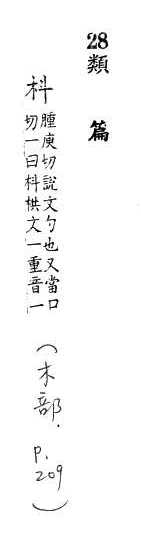 28 類篇
枓 腫庾切說文勺也又當口
切一曰枓栱文一重音一
(木部. p. 209)